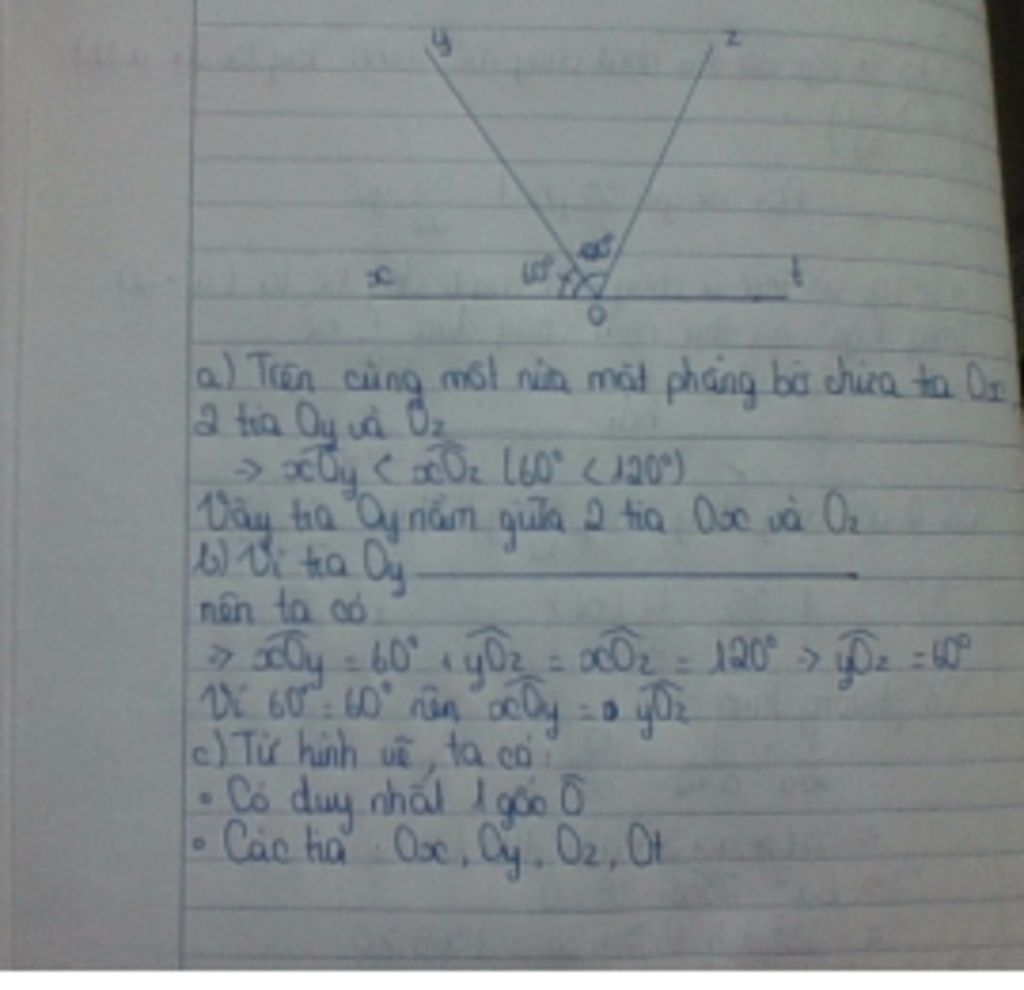 y z
x 60° t
O
a) Trên cùng một nửa mặt phẳng bờ chứa tia Ox,
2 tia Oy và Oz
=> xOy < xOz (60° < 120°)
Vậy tia Oy nằm giữa 2 tia Ox và Oz
b) Vì tia Oy
nên ta có
=> xOy = 60° + yOz = xOz = 120° => yOz = 60°
Vì 60° = 60° nên xOy = yOz
c) Từ hình vẽ, ta có:
• Có duy nhất 1 góc O
• Các tia : Ox, Oy, Oz, Ot